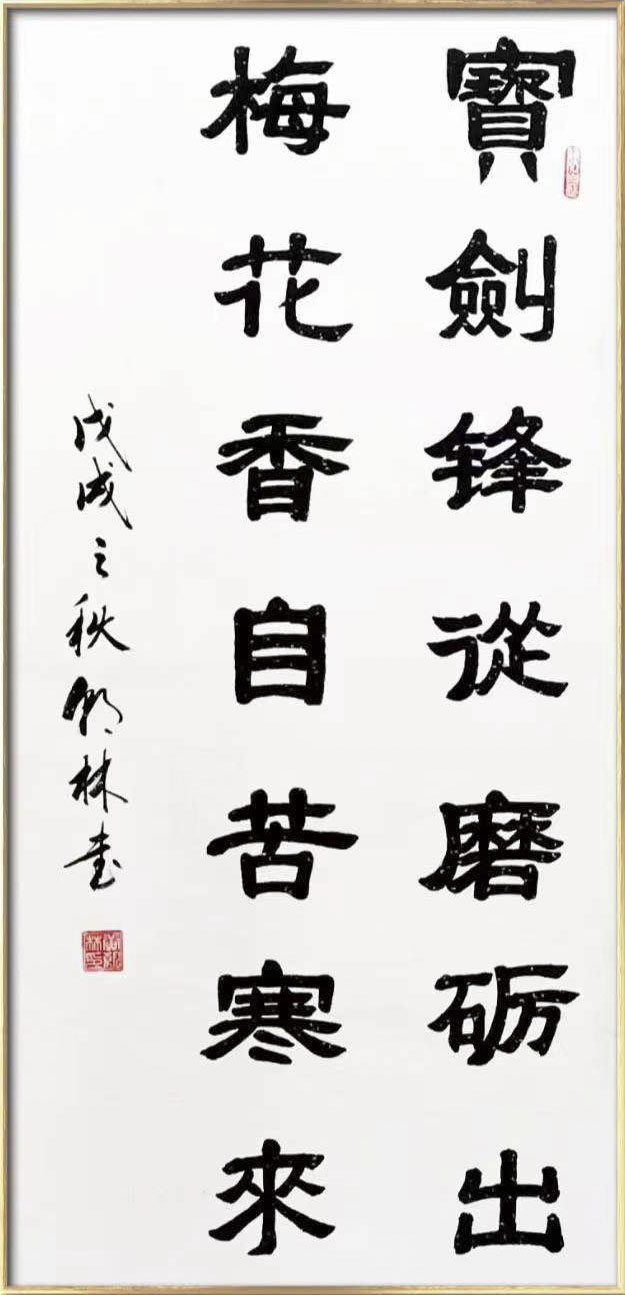 寶劍锋從磨砺出
梅花香自苦寒來
戊戌之秋朝林書